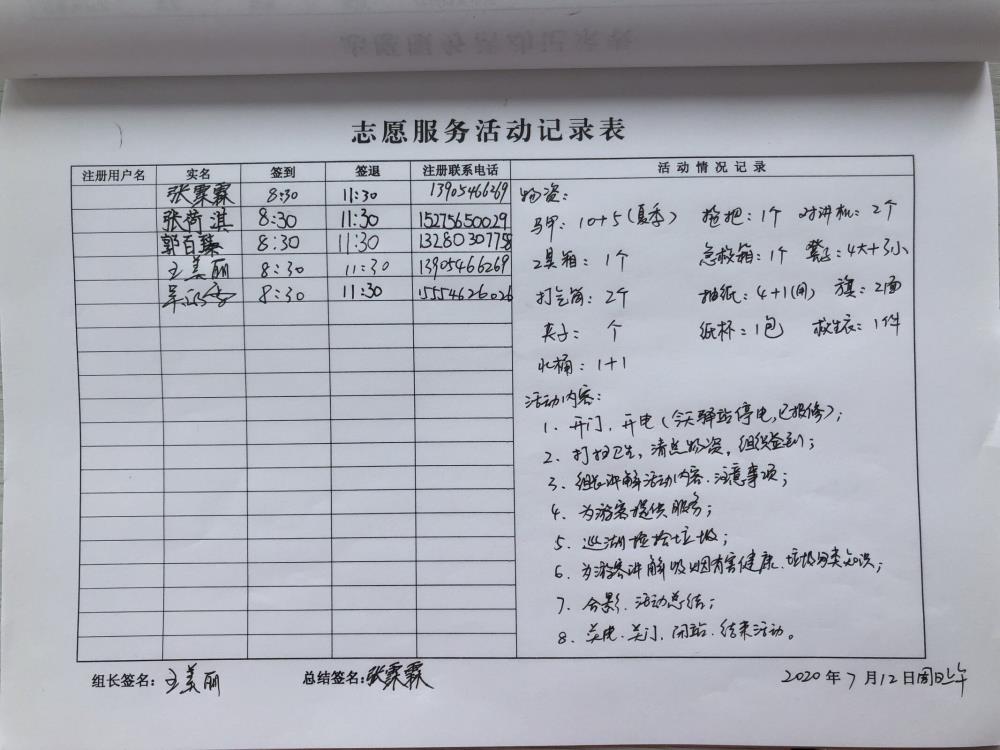 志愿服务活动记录表
注册用户名 实名 签到 签退 注册联系电话 活动情况记录
张霖霖 8:30 11:30 13905466269
张荷淇 8:30 11:30 15275650029
郭百臻 8:30 11:30 13280307758
王美丽 8:30 11:30 13905466269
8:30 11:30 15554626026
物资:
马甲: 10+5(夏季) 拖把: 1个 对讲机: 2个
工具箱: 1个 急救箱: 1个 凳子: 4大+3小
打气筒: 2个 抽纸: 4+1(闲) 旗: 2面
夹子: 个 纸杯: 1包 救生衣: 1件
水桶: 1+1
活动内容:
1、开门、开电(今天驿站停电,已报修);
2、打扫卫生,清点物资,组织签到;
3、组长讲解活动内容、注意事项;
4、为游客提供服务;
5、巡湖捡拾垃圾;
6、为游客讲解吸烟有害健康、垃圾分类知识;
7、合影、活动总结;
8、关电、关门、闭站、结束活动。
组长签名: 王美丽 总结签名: 张霖霖 2020年7月12日周日上午